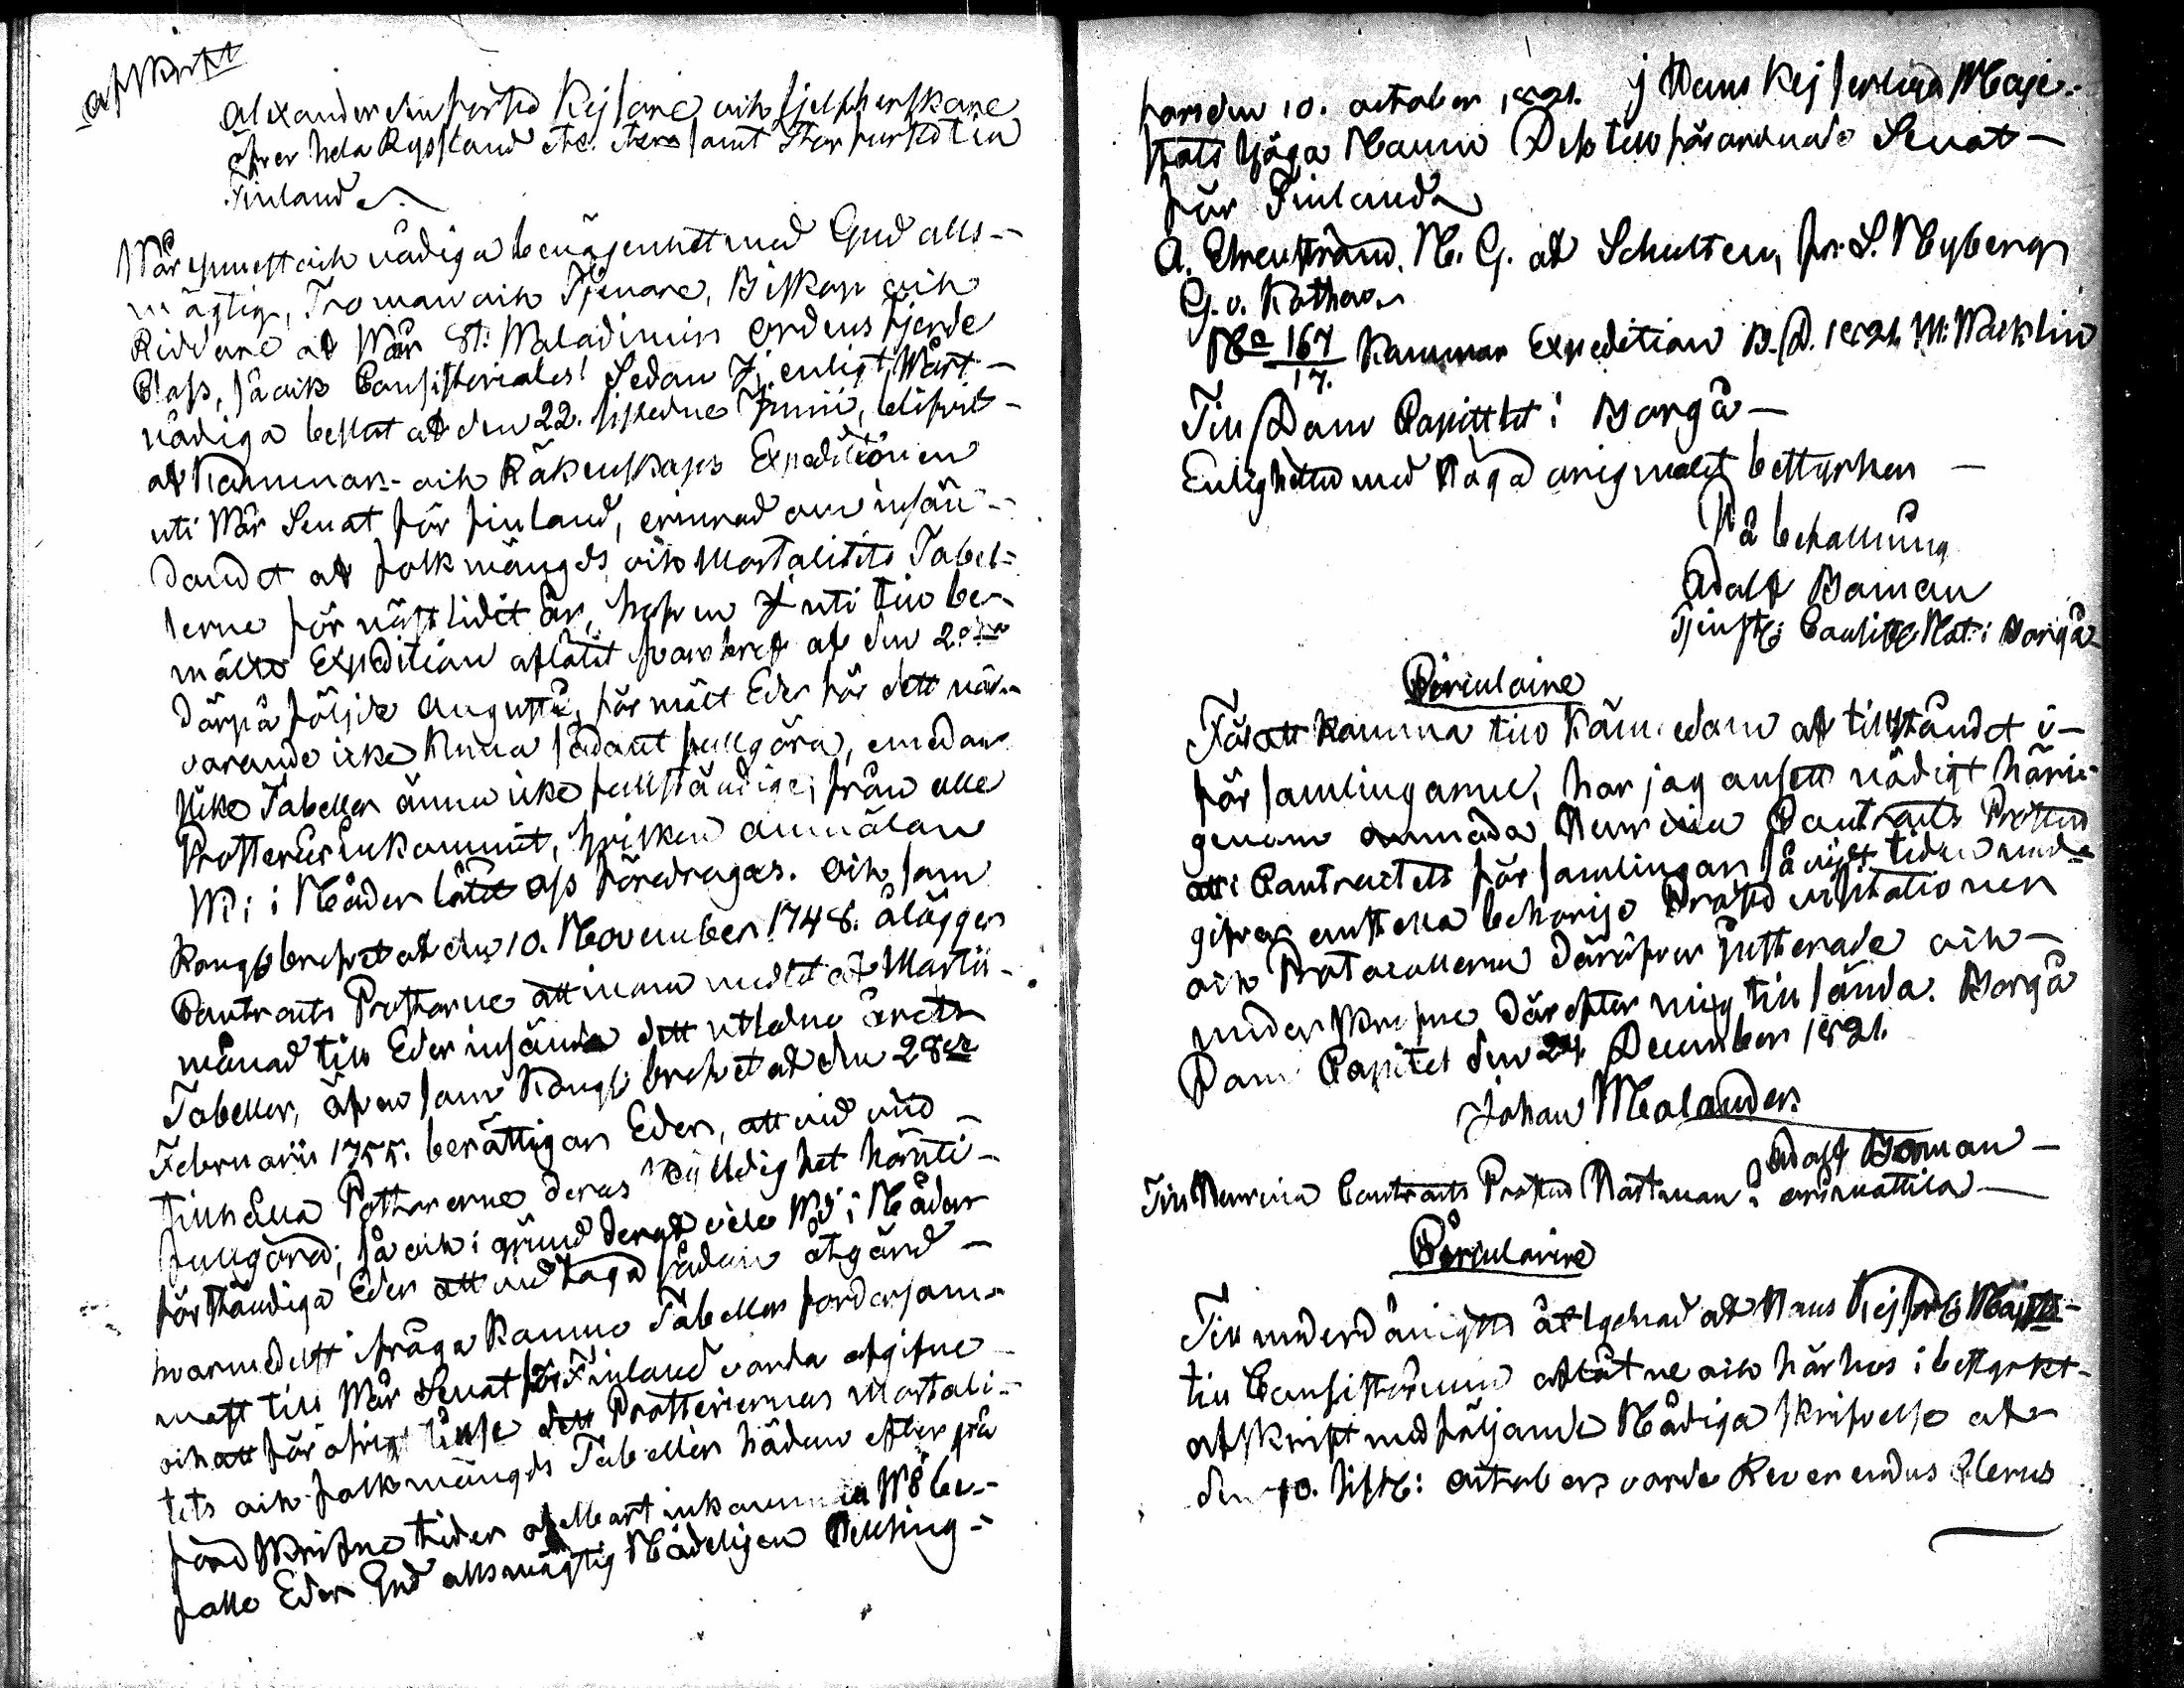 afskrift
Alexander den förste Kejsare och sjelfherskare
öfver hela Ryssland etc. etc. samt Storfurste till
Finland
Vår ynnest och nådiga benägenhet med Gud alls-
mägtig, Troman och Tjenare, Biskop och
Riddare af Vår St: Waladimirs ordens fjerde
Class, så ock Consistoriales! Sedan I, enligt Vårt
nådiga beslut af den 22. sistledne Junii, blifvit
af Kammar- och Räkenskaps Expeditionen
uti Vår Senat för Finland, erinrad om insän-
dandet af folkmängds och Mortalitets Tabel-
lerne för nästlidit år, hafven I uti till be-
mälte Expedition aflåtit svarsbref af den 20de
därpå följde Augusti, förmält Eder för det när-
varande icke kunna sådant fullgöra, emedan
slike Tabeller ännu icke fullständige, från alle
Prosterier inkommit, hvilken anmälan
Vi i Nåder låtit oss föredragas. Och som
Kongl. brefvet af den 10. November 1748. ålägger
Contracts Prostarne att inom medlet af Martii
månad till Eder insända det utledne årets
Tabeller, äfven som Kongl: brefvet af den 28de
Februarii 1755. berättigar Eder, att vid vite
tillhålla Prostarne deras skyldighet häruti
fullgöra; så ock i grund deraf vele Vi i Nåder
förständiga Eder att vidtaga sådan åtgärd
hvarmedelst ifråga komne Tabeller fordersam-
mast till Vår Senat för Finland varda afgifne
och att för öfrigt tillse det Prosteriernas Mortali-
tets och folkmängds Tabeller hädanefter på
föreskrifne tider ofelbart inkomma Vi be-
falle Eder Gud allsmägtig Nådeligen Helsing-
fors den 10. october 1821. I Hans Kejserliga Maje-
stäts höga Namn Dess till förordnade Senat
för Finland
A. Ehrenström. N. G. af Schulten, Fr. S. Nyberg
G. v. Kothen
No 167/17. Kammar Expedition B. D. 1821. M: Wacklin
Till Dom Capitlet i Borgå
Enligheten med höga originalet bettyrker
På befallning
Adolf Boman
Tjenst: Consist: Not: i Borgå
Circulaire
För att komma till kännedom af tillståndet i
församlingarne, har jag ansett nödigt häri-
genom anmoda Herrar Contracts Prostar
att i Contractets församlingar så vidt tiden med-
gifver anställa behörige Prost visitationer
och Protocollerne däröfver justerade och
underskrifne därefter mig tillsända. Borgå
Dom Capitel den 24. December 1821.
Johan Molander
Adolf Boman
Till Herrar Contracts Prosten Hästman i Orimattila
Circulaire
Till underdånigste åtlydnad af Hans Kejserl: Majsts
till Consistorium aflåtne och härhos i bettyrkt
afskrift medföljande Nådiga skrifvelse af
den 10. sistl: october varde Reverendus Clerus